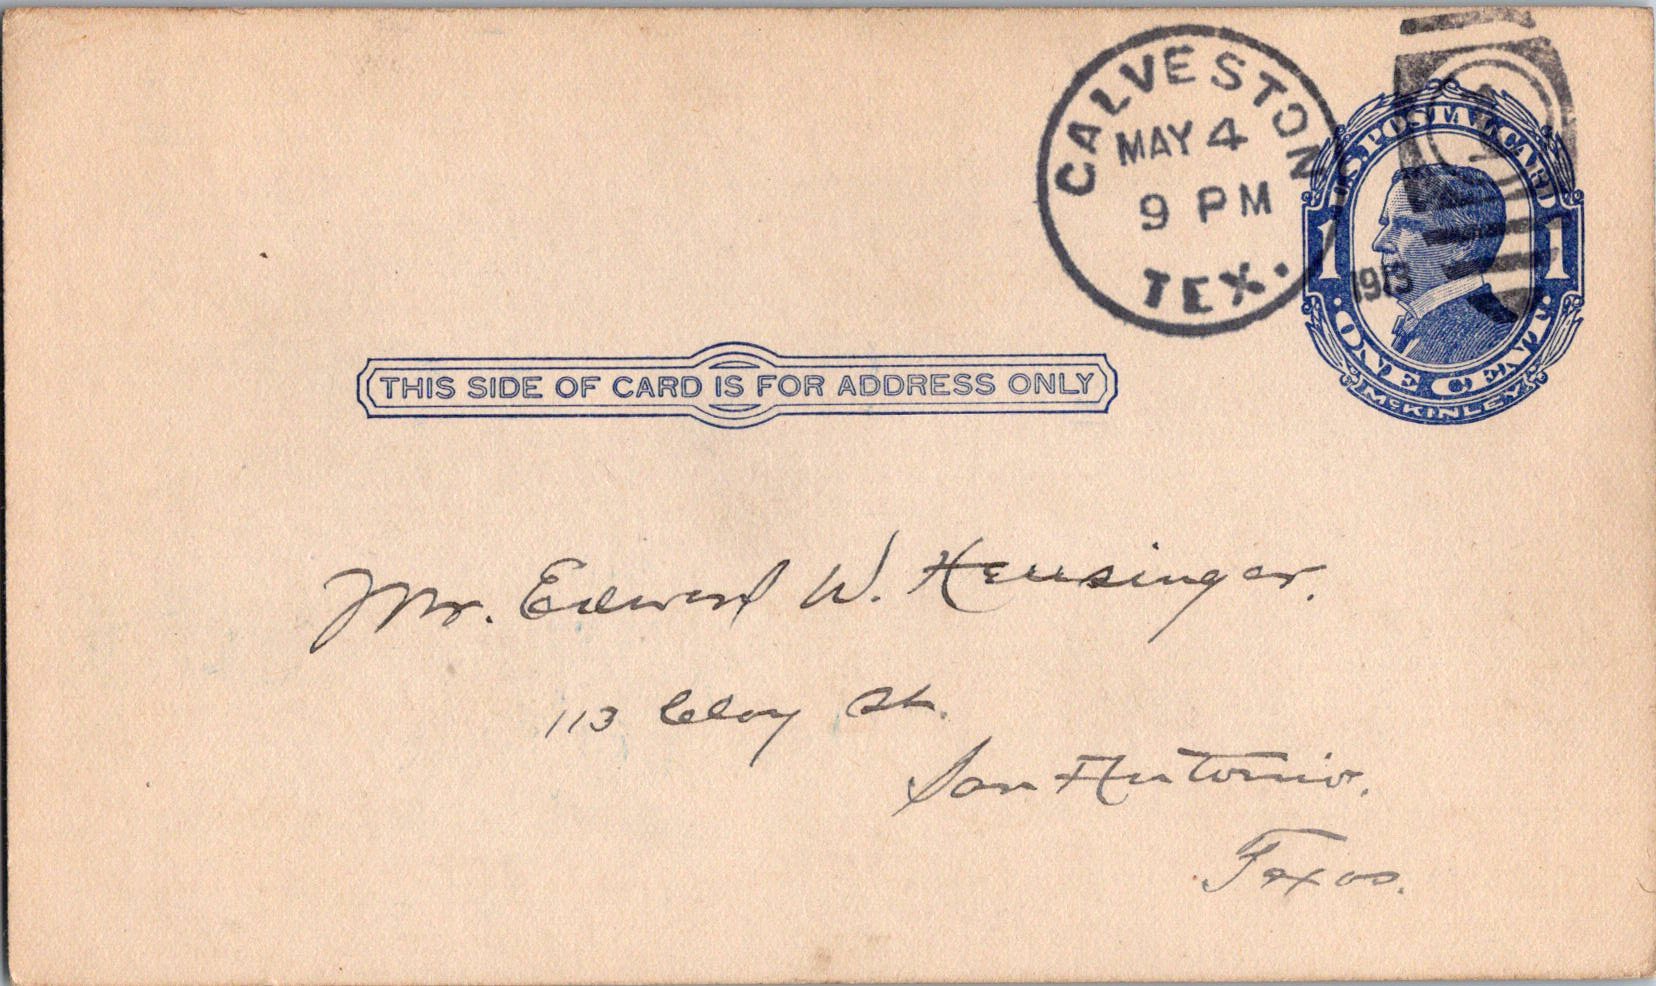 GALVESTON
MAY 4
9 PM
TEX.
1913
U.S. POSTAL CARD
1 1
ONE CENT
McKINLEY
THIS SIDE OF CARD IS FOR ADDRESS ONLY
Mr. Edward W. Heusinger.
113 Clay St.
San Antonio.
Texas.